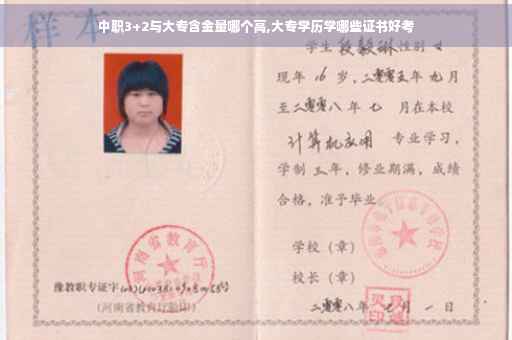 中职3+2与大专含金量哪个高,大专学历学哪些证书好考
样本
学生 段毅琳 性别 女
现年 16 岁,二零零五年 九月
至二零零八年 七 月在本校
计算机应用 专业学习,
学制 三 年,修业期满,成绩
合格,准予毕业
学校(章)
校长(章)
河南省教育厅
豫教职专证字
(河南省教育厅验印)
二零零八年 月 一 日